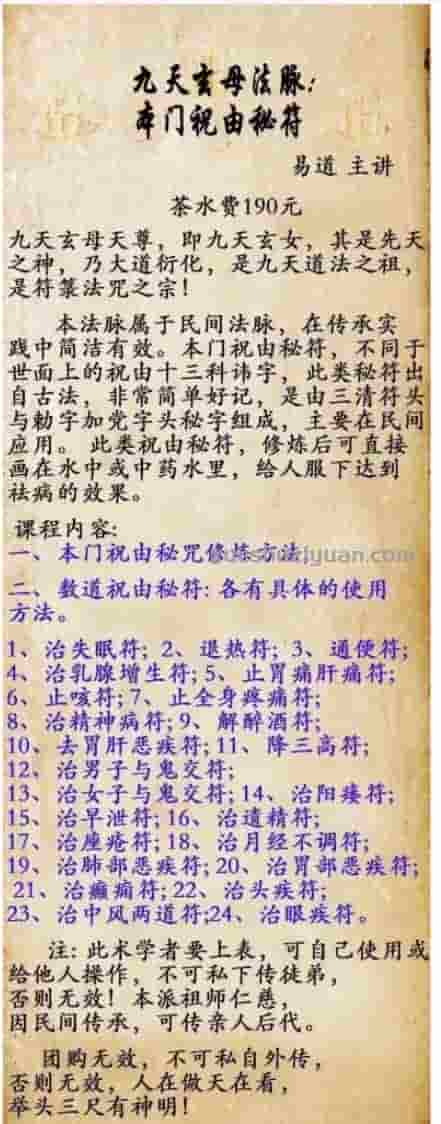 九天玄母法脉:
本门祝由秘符
易道 主讲
茶水费190元
九天玄母天尊，即九天玄女，其是先天
之神，乃大道衍化，是九天道法之祖，
是符箓法咒之宗！
本法脉属于民间法脉，在传承实
践中简洁有效。本门祝由秘符，不同于
世面上的祝由十三科讳字，此类秘符出
自古法，非常简单好记，是由三清符头
与勅字加党字头秘字组成，主要在民间
应用。 此类祝由秘符，修炼后可直接
画在水中或中药水里，给人服下达到
祛病的效果。
课程内容:
一、本门祝由秘咒修炼方法；
二、数道祝由秘符: 各有具体的使用
方法。
1、治失眠符; 2、退热符; 3、通便符;
4、治乳腺增生符; 5、止胃痛肝痛符;
6、止咳符; 7、止全身疼痛符;
8、治精神病符; 9、解醉酒符;
10、去胃肝恶疾符; 11、降三高符;
12、治男子与鬼交符;
13、治女子与鬼交符; 14、治阳痿符;
15、治早泄符; 16、治遗精符;
17、治痤疮符; 18、治月经不调符;
19、治肺部恶疾符; 20、治胃部恶疾符;
21、治癫痫符; 22、治头疾符;
23、治中风两道符;24、治眼疾符。
注: 此术学者要上表，可自己使用或
给他人操作，不可私下传徒弟，
否则无效！本派祖师仁慈，
因民间传承，可传亲人后代。
团购无效，不可私自外传，
否则无效，人在做天在看，
举头三尺有神明！